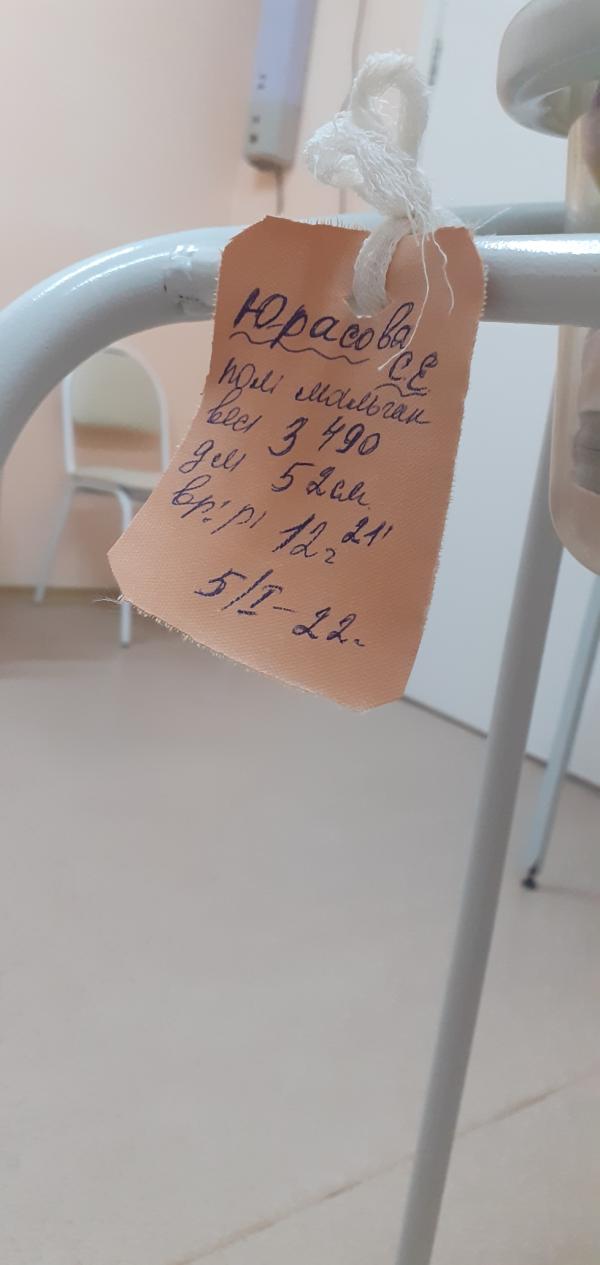 Юрасова
СЕ
пол мальчик
вес 3 490
дл 52см.
вр. р. 12ч 21'
5/I-22г.